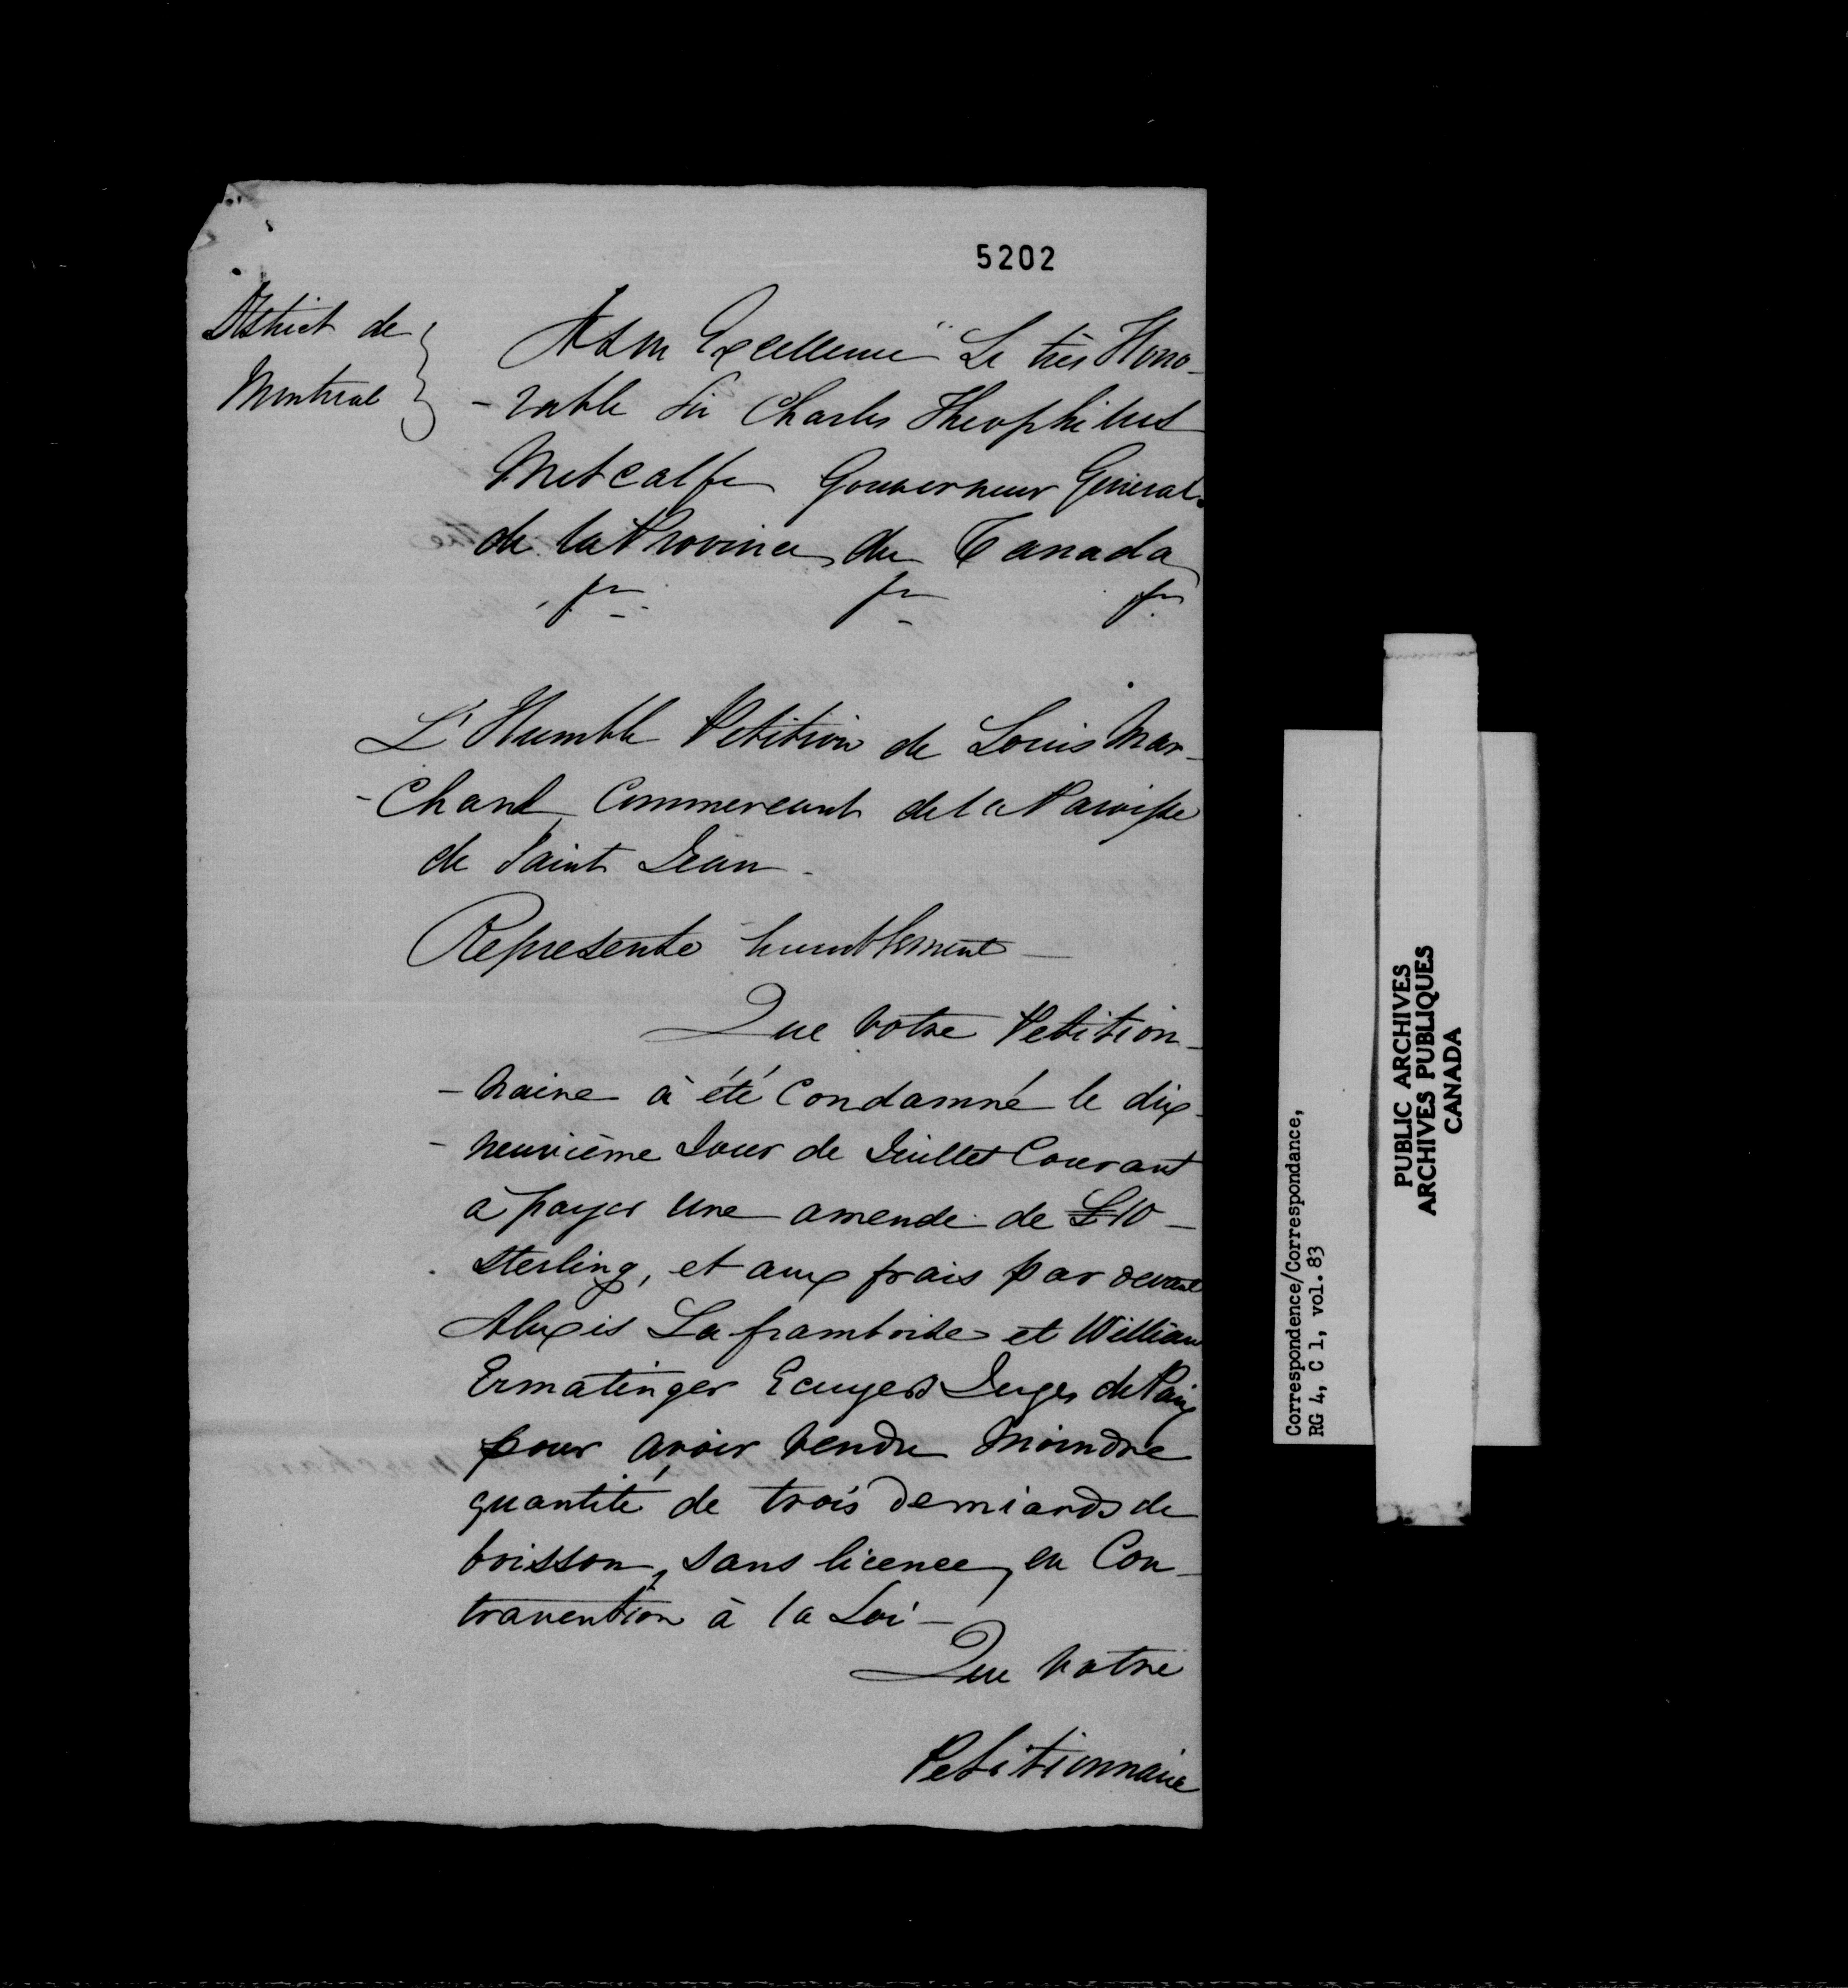 5202
District de
Montreal
A Son Excellence Le très Hono-
-rable Sir Charles Theophilus
Metcalfe Gouverneur General
de la Province du Canada
L'Humble Petition de Louis Mar-
-Chand Commercant de la Paroisse
de Saint Jean -
Represente humblement -
Que votre Petition-
-naire à été Condamné le dix-
-neuvième Jour de Juillet Courant
à payer une amende de £10 -
Sterling, et aux frais par devant
Alexis La framboise et William
Ermatinger Ecuyers Juges de Paix
pour avoir vendu moindre
quantité de trois demiards de
boisson, sans licence, en Con-
travention à la Loi -
Que votre
Petitionnaire
Correspondence/Correspondance,
RG 4, C 1, vol. 83
PUBLIC ARCHIVES
ARCHIVES PUBLIQUES
CANADA